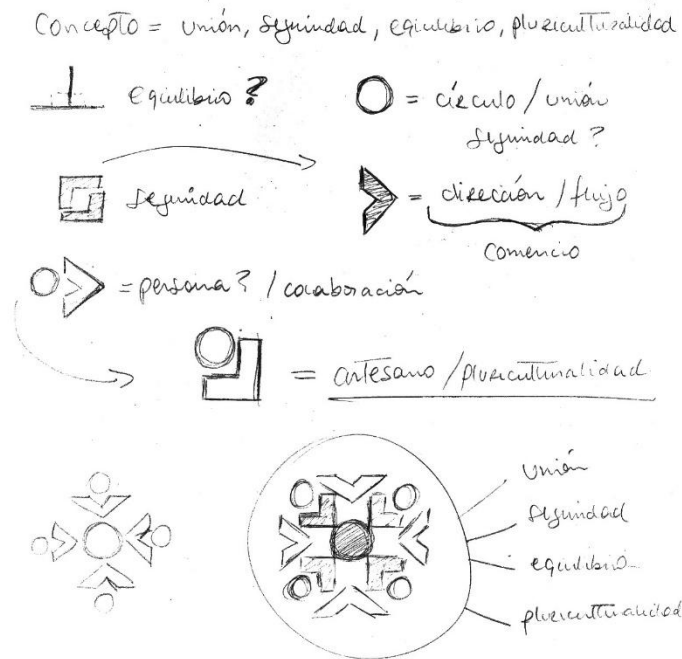 Concepto = unión, seguridad, equilibrio, pluriculturalidad
equilibrio ?
= círculo / unión
seguridad ?
seguridad
= dirección / flujo
comercio
= persona? / colaboración
= artesano / pluriculturalidad
unión
seguridad
equilibrio
pluriculturalidad